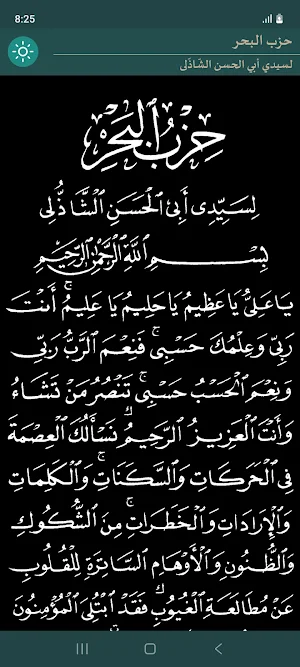 8:25
حزب البحر
لسيدي أبي الحسن الشَاذَلى
حِزْبُ الْبَحْرِ
لِسَيِّدِى أَبِى الْحَسَنِ الشَّاذُلِى
بِسْمِ اللَّهِ الرَّحْمَٰنِ الرَّحِيمِ
يَاعَلِىُّ يَا عَظِيمُ يَا حَلِيمُ يَا عَلِيمُ ۚ أَنْتَ
رَبِّى وَعِلْمُكَ حَسْبِى ۚ فَنِعْمَ الرَّبُّ رَبِّى
وَنِعْمَ الْحَسْبُ حَسْبِى ۚ تَنْصُرُ مَنْ تَشَاءُ
وَأَنْتَ الْعَزِيزُ الرَّحِيمُ ۗ نَسْأَلُكَ الْعِصْمَةَ
فِى الْحَرَكَاتِ وَالسَّكَنَاتِ ۚ وَالْكَلِمَاتِ
وَالْإِرَادَاتِ وَالْخَطَرَاتِ ۚ مِنَ الشُّكُوكِ
وَالظُّنُونِ وَالْأَوْهَامِ السَّاتِرَةِ لِلْقُلُوبِ
عَنْ مُطَالَعَةِ الْغُيُوبِ ۗ فَقَدِ ابْتُلِىَ الْمُؤْمِنُونَ